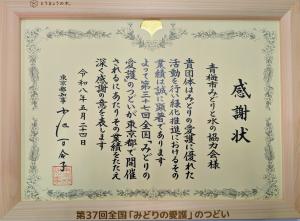 とうきょうの木
感謝状
青梅市みどりと水の協力会様
貴団体はみどりの愛護に優れた
活動を行い緑化推進におけるその
業績は誠に顕著であります
よって第三十七回全国「みどりの
愛護」のつどいが東京都で開催
されるにあたりその業績をたたえ
深く感謝の意を表します
令和八年五月二十四日
東京都知事 小池百合子
第37回全国「みどりの愛護」のつどい